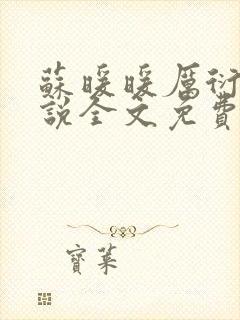 蘇暖暖厲衍
說全文免費
寶萊